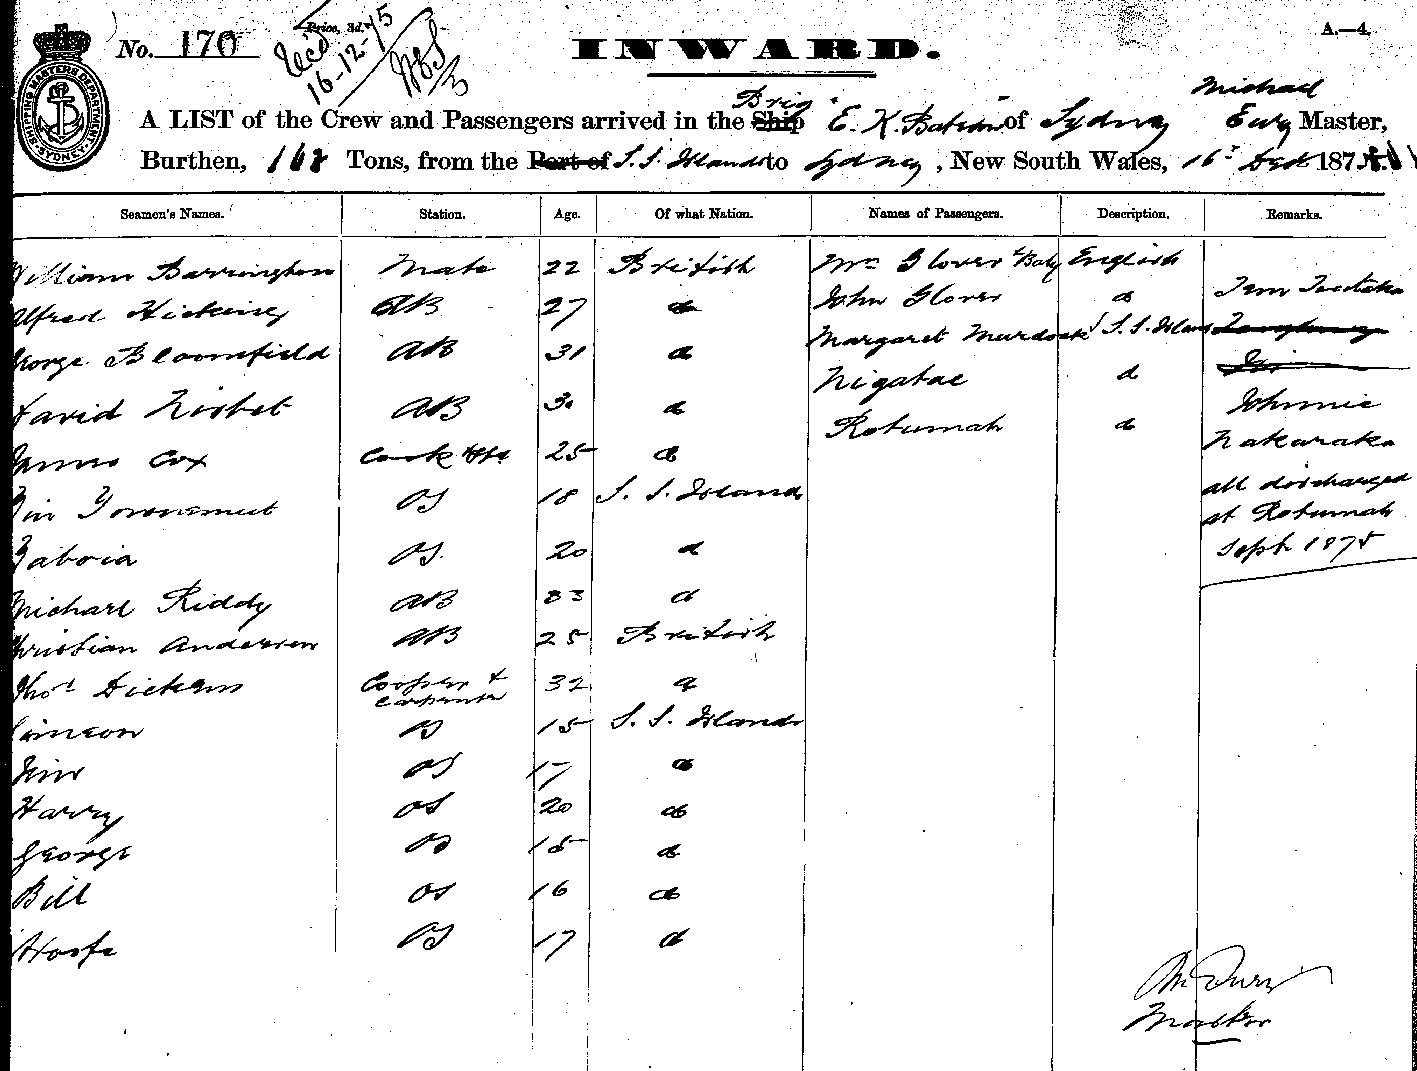 No. 170
Price, 3d.
Recd
16-12-75
INWARD.
A.—4.
SHIPPING MASTERS DEPARTMENT SYDNEY
Michael
Brig
A LIST of the Crew and Passengers arrived in the Ship "E. K. Bateson" of Sydney Master,
Burthen, 168 Tons, from the Port of S. S. Islands to Sydney, New South Wales, 16th Dec 1875
Seamen's Names. Station. Age. Of what Nation. Names of Passengers. Description. Remarks.
William Barrington Mate 22 British Mrs Glover & Baby English
Alfred Hickey AB 27 d John Glover d Tom
George Bloomfield AB 31 d Margaret Murdock S. S. Islands
David Nisbet AB d Nigatae d Johnnie
James Cox Cook 25 d Rotumah d Nakaraka
OS 18 S. S. Islands all discharged
Taboia OS. 20 d at Rotumah
Sept 1875
Michael Riddy AB 33 d
Christian Anderson AB 25 British
Thos Dickens Cooper & Carpenter 32 d
Simeon OS 15 S. S. Islands
Jim OS 17 d
Harry OS 20 d
George OS 15 d
Bill OS 16 d
OS 17 d
Master